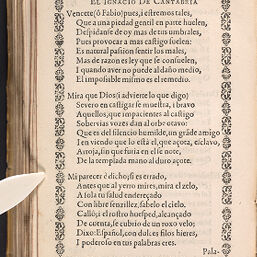 EL IGNACIO DE CANTABRIA
Vencette (ô Fabio) pues, i estremos tales,
Que a una piedad gentil en parte suelen,
Despidanse de oy mas de tus umbrales,
Pues provocar a mas castigo suelen:
Es natural passion sentir los males,
Mas de razon es ley que se consuelen,
I quando aver no puede al daño medio,
El impossible mismo es el remedio.
Mira que Dios (i advierte lo que digo)
Severo en castigar se muestra, i bravo
Aquellos, que impacientes al castigo
Sobervias vozes dan al orbe otavo:
Que es del silencio humilde, un grāde amigo
I en viendo que lo està el, que açota, esclavo,
Arroja, sin que furia en el se note,
De la templada mano al duro açote.
Mi parecer è dicho; si es errado,
Antes que al yerro mires, mira el zelo,
A sola tu salud endereçado
Con libre senzillez, sabelo el cielo.
Callò; i el rostro hosped, alcançado
De cuenta, se cubrio de un roxo velo:
Dixo: Español, con dulces filos hieres,
I poderoso en tus palabras eres.
Pala-